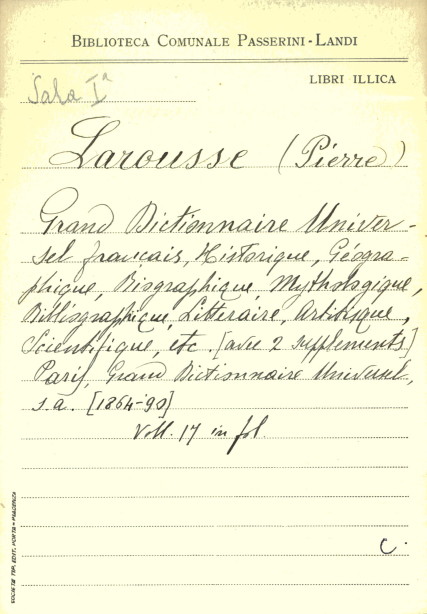 BIBLIOTECA COMUNALE PASSERINI-LANDI
LIBRI ILLICA
Sala Iª
Larousse (Pierre)
Grand Dictionnaire Univer-
sel francais, Historique, Géogra-
phique, Biographique Mythologique,
Bibliographique, Littéraire, Artistique,
Scientifique, etc. [avec 2 supplements]
Paris, Grand Dictionnaire Universel,
s.a. [1864-90]
Voll. 17 in fol.
C.
SOCIETÀ TIP. EDIT. PORTA - PIACENZA